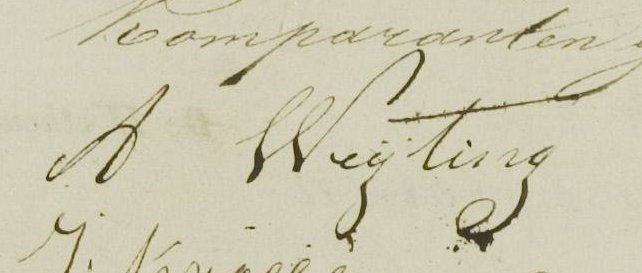 Komparanten
A Weyting